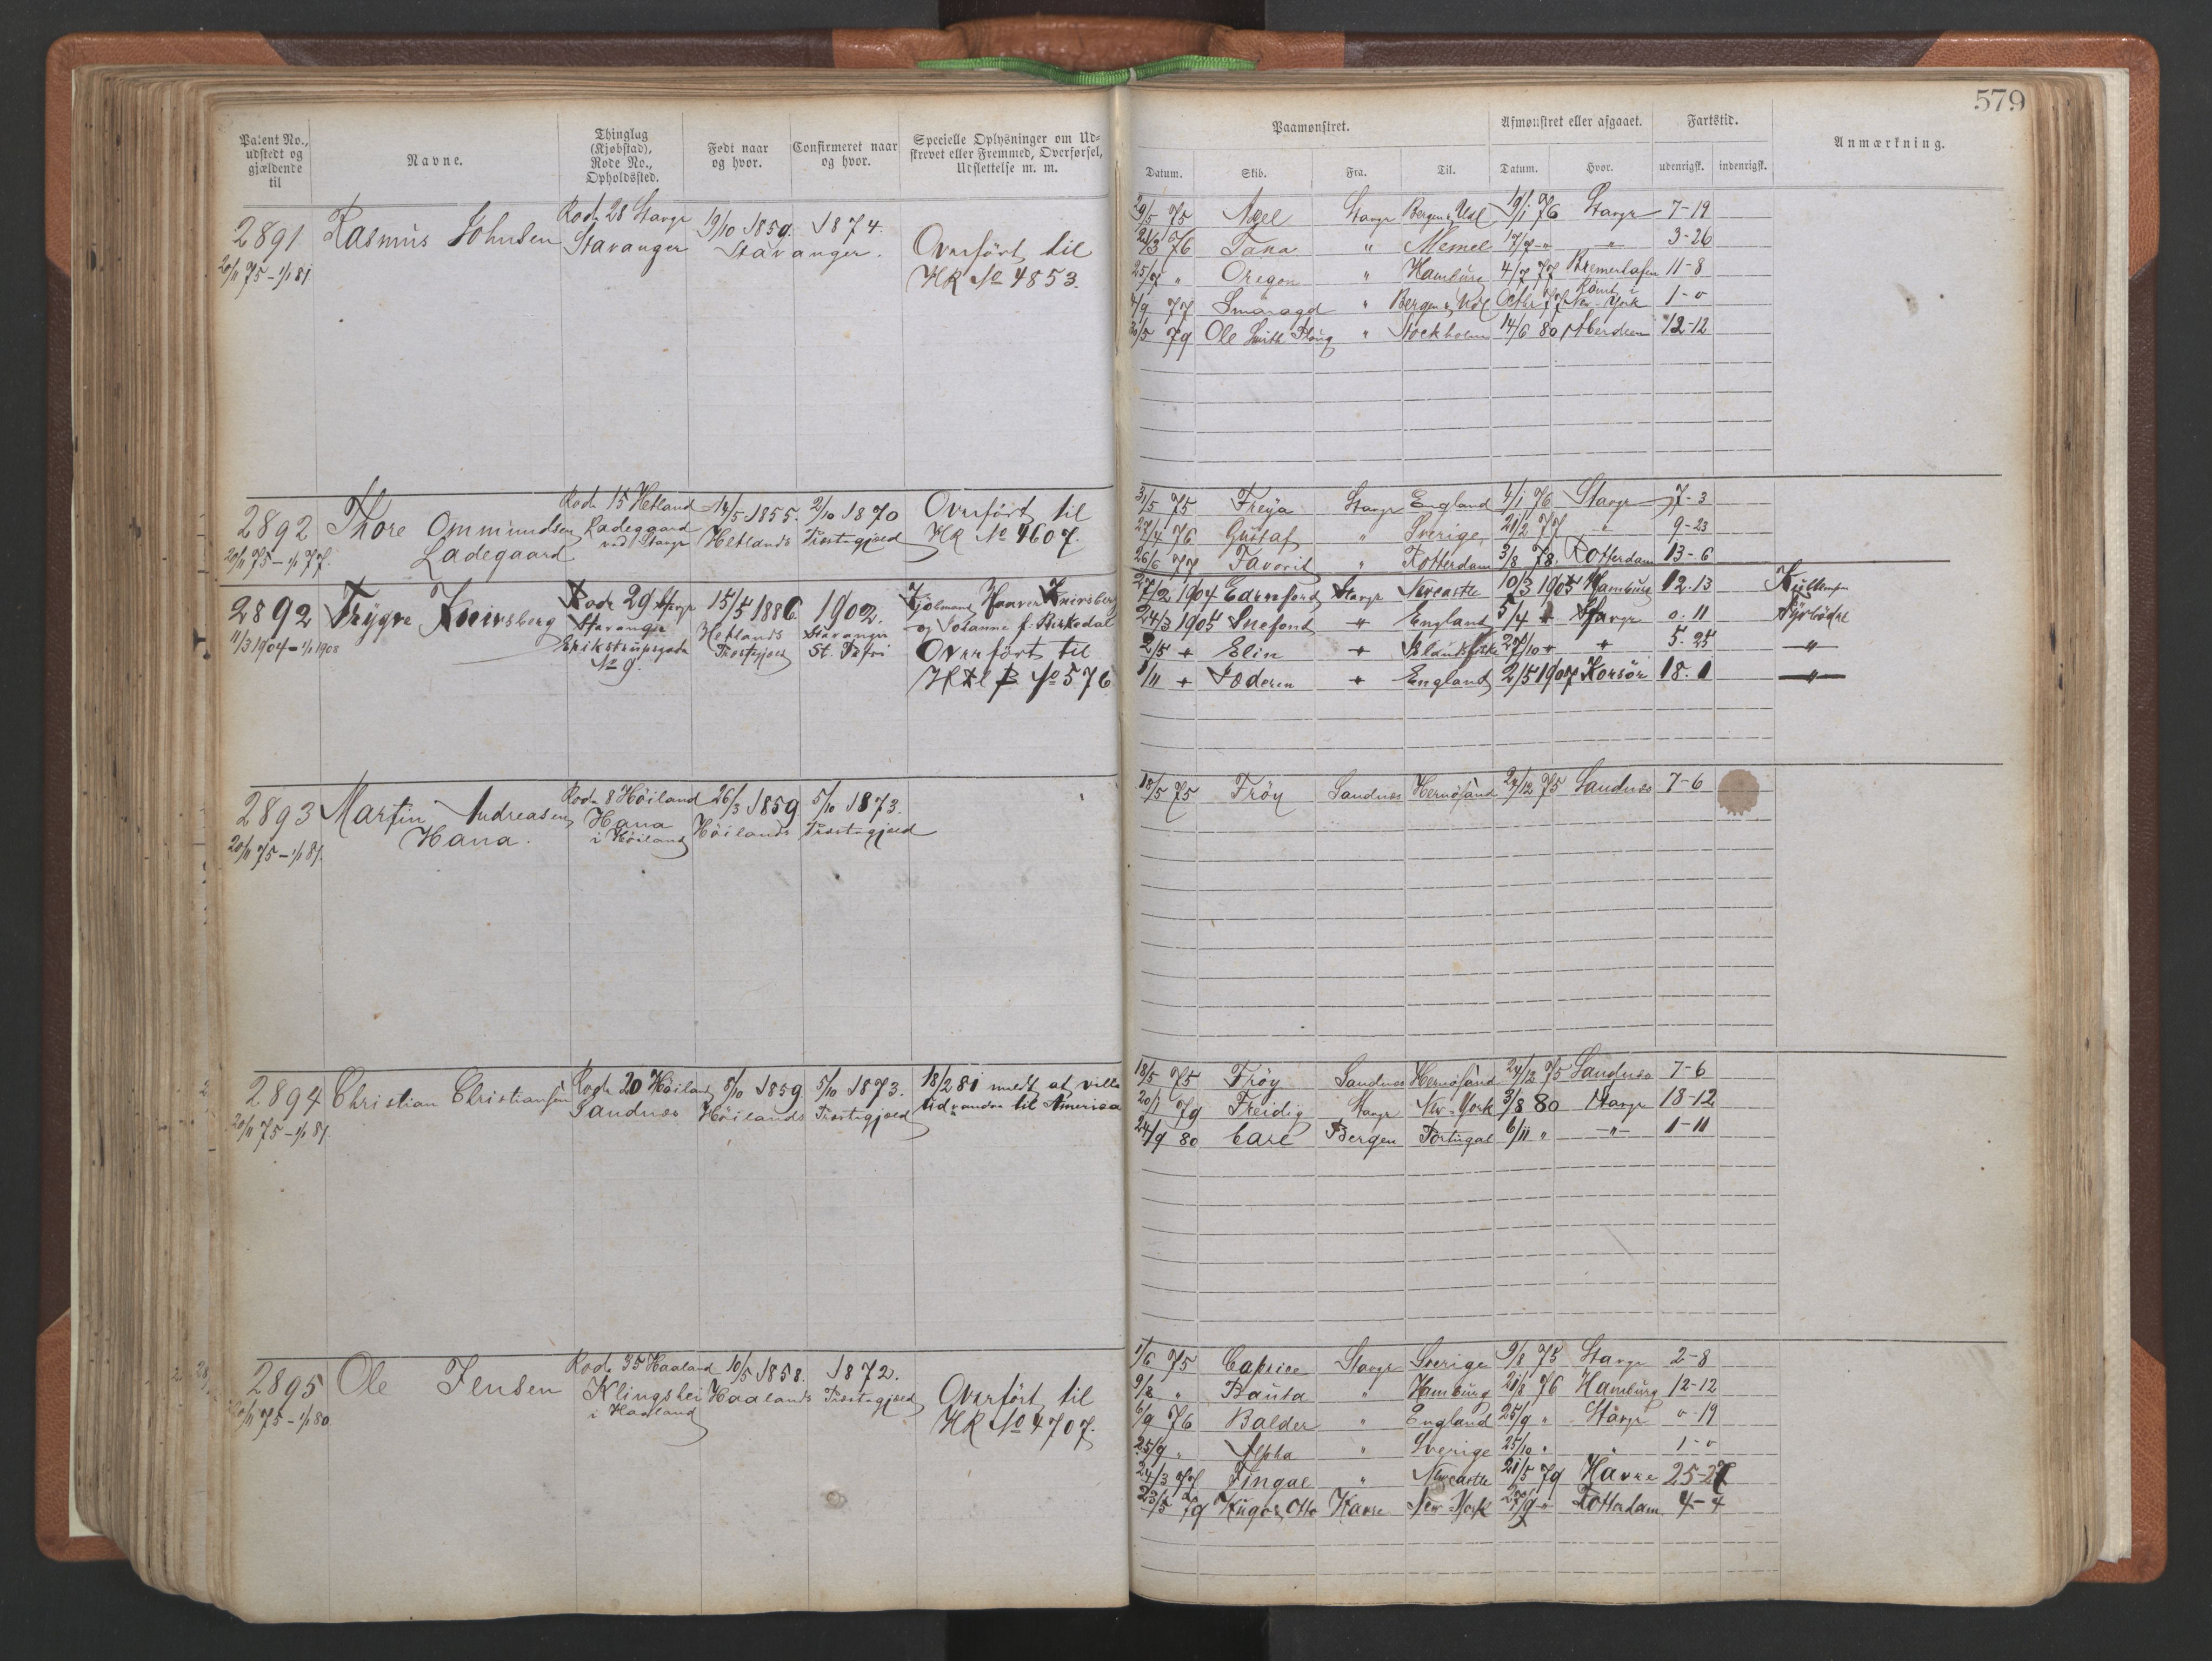 579
Patent No., udstedt og gjældende til
Navne.
Thinglag (Kjøbstad), Rode No., Opholdssted.
Født naar og hvor.
Confirmeret naar og hvor.
Specielle Oplysninger om Udskrevet eller Fremmed, Overførsel, Udslettelse m. m.
Paamønstret.
Afmønstret eller afgaaet.
Fartstid.
Anmærkning.
Datum. Skib. Fra. Til. Datum. Hvor. udenrigsk. indenrigsk.
2891 Rasmus Johnsen Rode 28 Stavgr 19/10 1859. 1874.
20/11 75 - 1/1 81 Stavanger Stavanger.
Overført til
HR No 4853.
29/5 75 Axel Stavgr Bergen & Udl 19/1 76 Stavgr 7-19
21/3 76 Tana " Memel 17/7 " " 3-26
25/7 " Oregon " Hamburg 4/7 77 Bremerhafen 11-8
4/9 77 Smaragd " Bergen & Udl Octbr 77 Rømt New-York 1-0
30/5 79 Ole Smith Ploug " Stockholm 14/6 80 Aberdeen 12-12
2892 Thore Ommundsen Rode 15 Hetland 14/5 1855. 2/10 1870
Ladegaard Ladegaard ved Stavgr Hetlands Præstegjæld
20/11 75 - 1/1 77.
Overført til
HR No 4607.
31/5 75 Freya Stavgr England 4/1 76 Stavgr 7-3
27/4 76 Gustaf " Sverige 21/2 77 " 9-23
26/6 77 Favorit " Rotterdam 3/8 78. Rotterdam 13-6
2892 Trygve Kneivsberg Rode 29 Stavgr 15/5 1886 1902.
11/3 1904 - 1/1 1908 Stavanger Hetlands Stavanger
Erikstrupsgade Præstegjæld St. Petri
No 9.
og Johanne f. Birkedal
Overført til
No 576
27/2 1904 Edernfjord Stavgr Newcastle 10/3 1905 Hamburg 12.13
24/3 1905 Snefond " England 5/4 " Stavgr 0.11 Fyrbøder
2/5 " Elin " 27/10 " " 5.25 "
1/11 " Joderen " England 2/5 1907 Korsør 18.1 "
2893 Martin Andreasen Rode 8 Høiland 26/3 1859 5/10 1873.
Hana. Hana Høilands Præstegjæld
i Høiland
20/11 75 - 1/1 81.
18/5 75 Frøy Sandnæs Hernøsand 24/12 75 Sandnæs 7-6
2894 Christian Christiansen Rode 20 Høiland 8/10 1859 5/10 1873.
Sandnæs Høilands Præstegjæld
20/11 75 - 1/1 81.
18/2 81 meldt at ville
udvandre til America
18/5 75 Frøy Sandnæs Hernøsand 24/12 75 Sandnæs 7-6
20/1 79 Freidig Stavgr New-York 3/8 80 Stavgr 18-12
24/9 80 Carl Bergen Portugal 6/11 " " 1-11
2895 Ole Jensen Rode 35 Haaland 10/5 1858. 1872.
Klingshei Haalands Præstegjæld
i Haaland
20/11 75 - 1/1 80
Overført til
HR No 4707.
1/6 75 Caprice Stavgr Sverige 9/8 75 Stavgr 2-8
9/8 " Bauta " Hamburg 21/8 76 Hamburg 12-12
6/9 76 Balder " England 25/9 " Stavgr 0-19
25/9 " Alpha " Sverige 25/10 " " 1-0
24/3 77 Fingal " Newcastle 21/5 79 Havre 25-27
23/5 79 Hugo & Otto Havre New-York 27/9 " Rotterdam 4-4